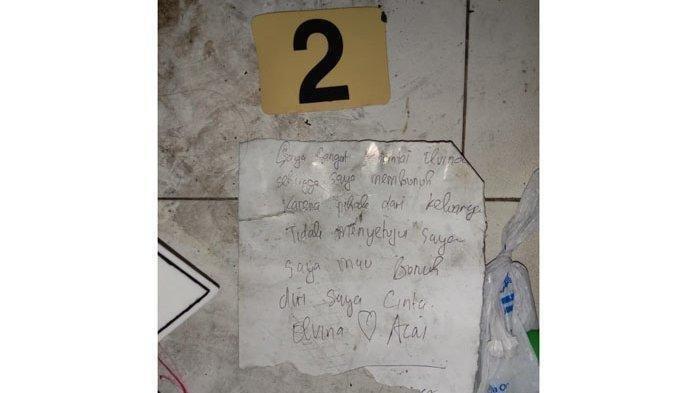 2
Saya Sangat Elvina
sehingga saya membunuh
Karena pihak dari keluarga
Tidak Menyetujui saya
saya mau Bunuh
diri saya Cinta.
Elvina ♡ Acai